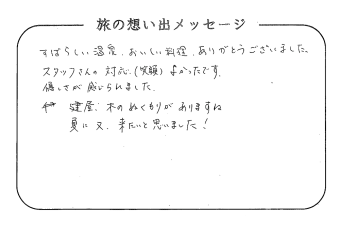 旅の想い出メッセージ
すばらしい温泉、おいしい料理、ありがとうございました。
スタッフさんの対応(笑顔)よかったです。
優しさが感じられました。
建屋、木のぬくもりがありますね
夏に又、来たいと思いました!